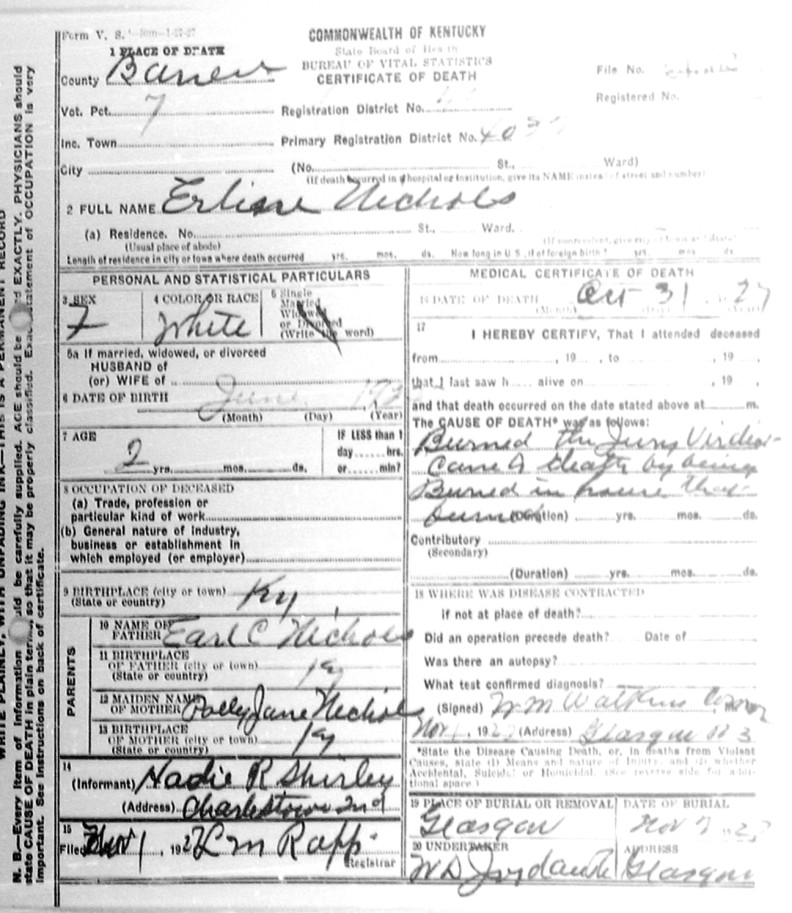 Form V. S.
COMMONWEALTH OF KENTUCKY
State Board of Health
BUREAU OF VITAL STATISTICS
CERTIFICATE OF DEATH
1 PLACE OF DEATH
County Barren
File No.
Registered No.
Vot. Pct. 7
Registration District No.
Inc. Town
Primary Registration District No. 403
City (No. St., Ward)
(If death occurred in hospital or institution, give its NAME instead of street and number)
2 FULL NAME Erline Nichols
(a) Residence. No. St., Ward.
(Usual place of abode)
Length of residence in city or town where death occurred yrs. mos. ds. How long in U S., if of foreign birth? yrs. mos. ds.
PERSONAL AND STATISTICAL PARTICULARS
3 SEX
F
4 COLOR OR RACE
White
5 Single
Married
Widowed
or Divorced
(Write the word)
5a If married, widowed, or divorced
HUSBAND of
(or) WIFE of
6 DATE OF BIRTH June
(Month) (Day) (Year)
7 AGE
2 yrs. mos. ds.
IF LESS than 1
day hrs.
or min?
8 OCCUPATION OF DECEASED
(a) Trade, profession or
particular kind of work
(b) General nature of industry,
business or establishment in
which employed (or employer)
9 BIRTHPLACE (city or town) Ky
(State or country)
PARENTS
10 NAME OF
FATHER Earl C Nichols
11 BIRTHPLACE
OF FATHER (city or town) Ky
(State or country)
12 MAIDEN NAME
OF MOTHER Polly Jane Nichols
13 BIRTHPLACE
OF MOTHER (city or town) Ky
(State or country)
14
(Informant) Hadie R Shirley
(Address) Charlestown Ind
15
Filed Nov 1, 1927 L M Rapp
Registrar
MEDICAL CERTIFICATE OF DEATH
16 DATE OF DEATH Oct 31 27
(Month) (Year)
17
I HEREBY CERTIFY, That I attended deceased
from , 19 , to , 19 ,
that I last saw h alive on , 19
and that death occurred on the date stated above at m.
The CAUSE OF DEATH* was as follows:
Burned the Jury Virdict
Cause of death by being
Burned in house that
burned (Duration) yrs. mos. ds.
Contributory
(Secondary)
(Duration) yrs. mos. ds.
18 WHERE WAS DISEASE CONTRACTED
if not at place of death?
Did an operation precede death? Date of
Was there an autopsy?
What test confirmed diagnosis?
(Signed) W M Watkins Coroner
Nov 1, 1927 (Address) Glasgow R 3
*State the Disease Causing Death, or, in deaths from Violent
Causes, state (1) Means and nature of Injury, and (2) whether
Accidental, Suicidal or Homicidal. (See reverse side for additional space.)
19 PLACE OF BURIAL OR REMOVAL
Glasgow
DATE OF BURIAL
Nov 27
20 UNDERTAKER
W D Jordan
ADDRESS
Glasgow
WRITE PLAINLY, WITH UNFADING INK—THIS IS A PERMANENT RECORD
N. B.—Every item of information should be carefully supplied. AGE should be stated EXACTLY. PHYSICIANS should
state CAUSE OF DEATH in plain terms, so that it may be properly classified. Exact statement of OCCUPATION is very
important. See instructions on back of certificate.